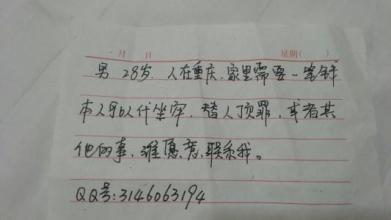 月 日 星期( )
男 28岁，人在重庆，家里需要一笔钱
本人可以代坐牢，替人顶罪，或者其
他的事，谁愿意，联系我。
QQ号:3146063194